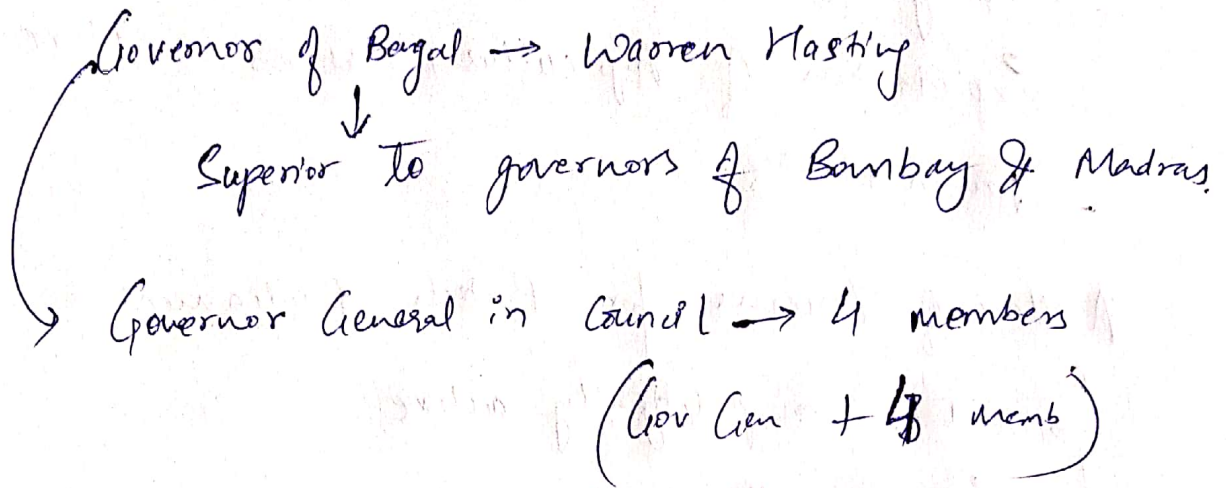 Governor of Bengal → Warren Hasting
↓
Superior to governors of Bombay & Madras.
→ Governor General in Council → 4 members
(Gov Gen + 4 memb)